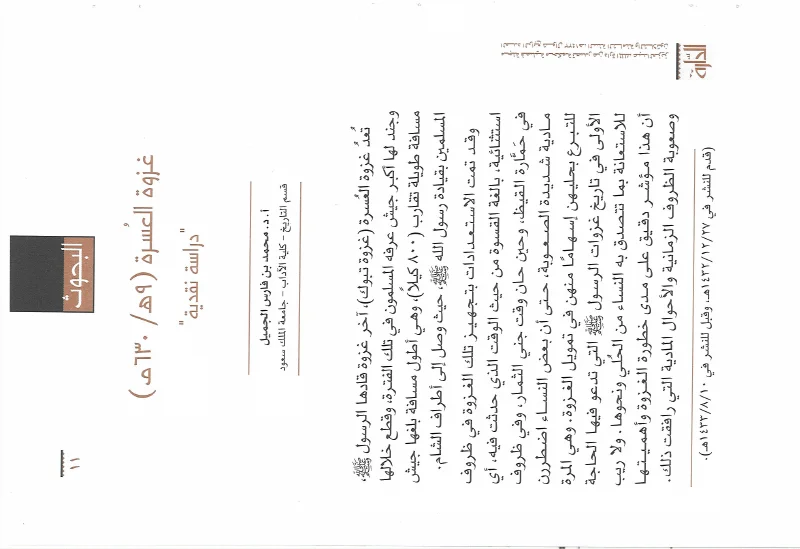 الدارة
مجلة فصلية محكمة تصدر عن دارة الملك عبدالعزيز
العدد الرابع شوال ١٤٣٣هـ، السنة الثامنة والثلاثون
البحوث
غزوة العُسرة (٩هـ/ ٦٣٠م)
"دراسة نقدية"
أ.د. محمد بن فارس الجميل
قسم التاريخ - كلية الآداب - جامعة الملك سعود
تُعد غزوة العُسرة (غزوة تبوك)، آخر غزوة قادها الرسول ﷺ،
وجند لها أكبر جيش عرفه المسلمون في تلك الفترة، وقطع خلالها
مسافة طويلة تقارب (٨٠٠ كيلًا)، وهي أطول مسافة بلغها جيش
المسلمين بقيادة رسول الله ﷺ، حيث وصل إلى أطراف الشام.
وقد تمت الاستعدادات بتجهيز تلك الغزوة في ظروف
استثنائية، بالغة القسوة من حيث الوقت الذي حدثت فيه، أي
في حَمَّارة القيظ، وحين حان وقت جني الثمار، وفي ظروف
مادية شديدة الصعوبة، حتى أن بعض النساء اضطررن
للتبرع بحليهن إسهامًا منهن في تمويل الغزوة. وهي المرة
الأولى في تاريخ غزوات الرسول ﷺ التي تدعو فيها الحاجة
للاستعانة بما تتصدق به النساء من الحُلي ونحوها. ولا ريب
أن هذا مؤشر دقيق على مدى خطورة الغزوة وأهميتها
وصعوبة الظروف الزمانية والأحوال المادية التي رافقت ذلك.
(قدم للنشر في ١٤٣٢/١٢/٢٧هـ، وقبل للنشر في ١٤٣٣/٨/١٠هـ).
١١